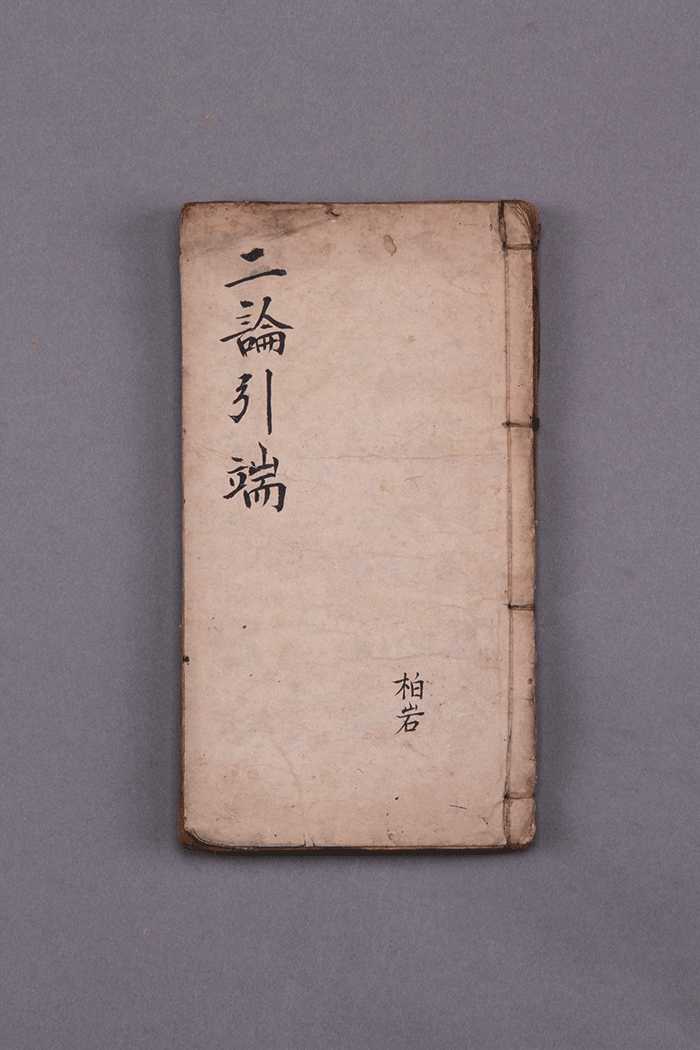 二論引端
柏岩